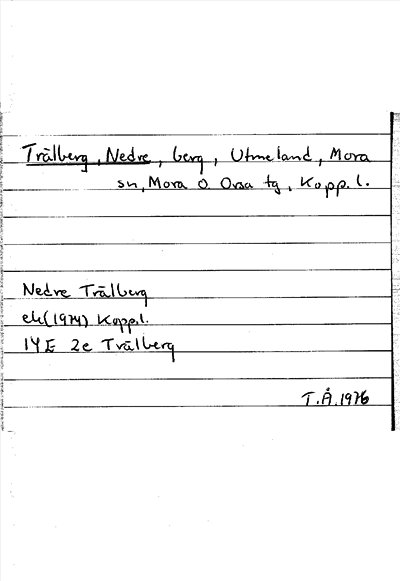 Trålberg, Nedre, berg, Utmeland, Mora
sn, Mora o. Orsa tg, Kopp. l.
Nedre Trålberg
ek (1974) Kopp.l.
14E 2e Trålberg
T.Å. 1976